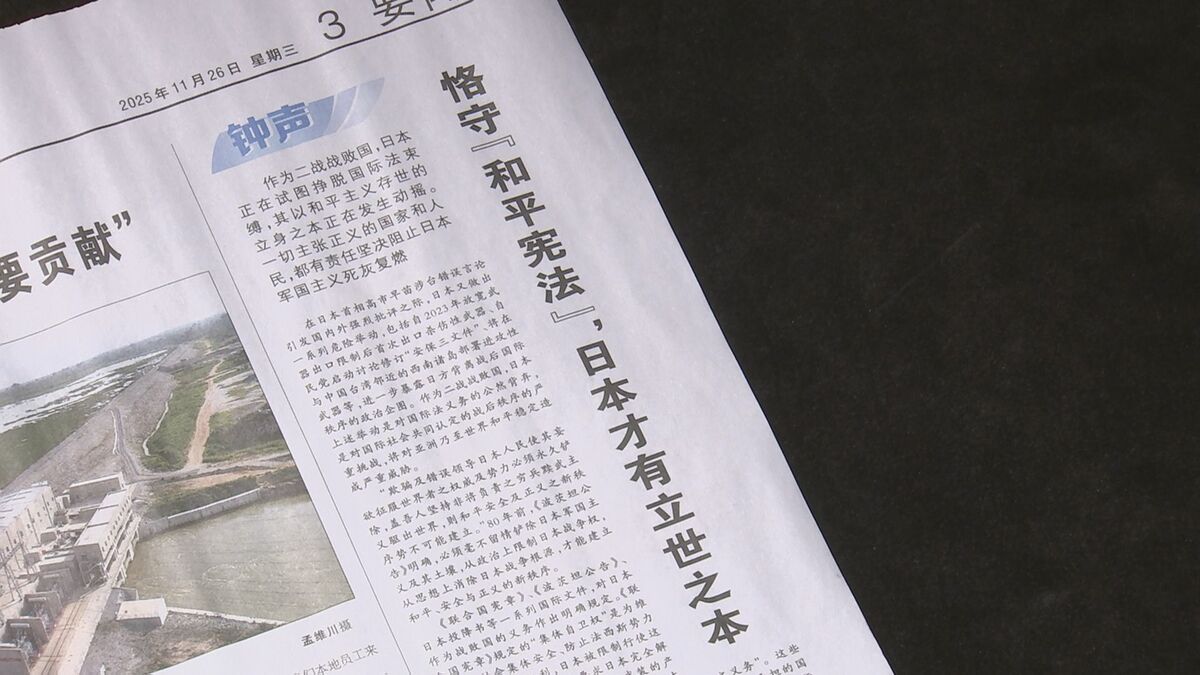 2025年11月26日 星期三
3
要
要贡献”
孟维川摄
们本地员工来
钟声
恪守『和平宪法』，日本才有立世之本
作为二战战败国，日本
正在试图挣脱国际法束
缚，其以和平主义存世的
立身之本正在发生动摇。
一切主张正义的国家和人
民，都有责任坚决阻止日本
军国主义死灰复燃
在日本首相高市早苗涉台错误言论
引发国内外强烈批评之际，日本又做出
一系列危险举动，包括自2023年放宽武
器出口限制后首次出口杀伤性武器、自
民党启动讨论修订“安保三文件”、将在
与中国台湾邻近的西南诸岛部署进攻性
武器等，进一步暴露日方背离战后国际
秩序的政治企图。作为二战战败国，日本
上述举动是对国际法义务的公然背弃，
是对国际社会共同认定的战后秩序的严
重挑战，将对亚洲乃至世界和平稳定造
成严重威胁。
“欺骗及错误领导日本人民使其妄
欲征服世界者之权威及势力必须永久铲
除，盖吾人坚持非将负责之穷兵黩武主
义驱出世界，则和平安全及正义之新秩
序势不可能建立。”80年前，《波茨坦公
告》明确，必须毫不留情铲除日本军国主
义及其土壤，从政治上限制日本战争权，
从思想上消除日本战争根源，才能建立
和平、安全与正义的新秩序。
《联合国宪章》、《波茨坦公告》、
日本投降书等一系列国际文件，对日本
作为战败国的义务作出明确规定。《联
合国宪章》规定的“集体自卫权”是为维
会集体安全、防止法西斯势力
利，日本被限制行使这
求日本完全解
装的产
义务”。这些